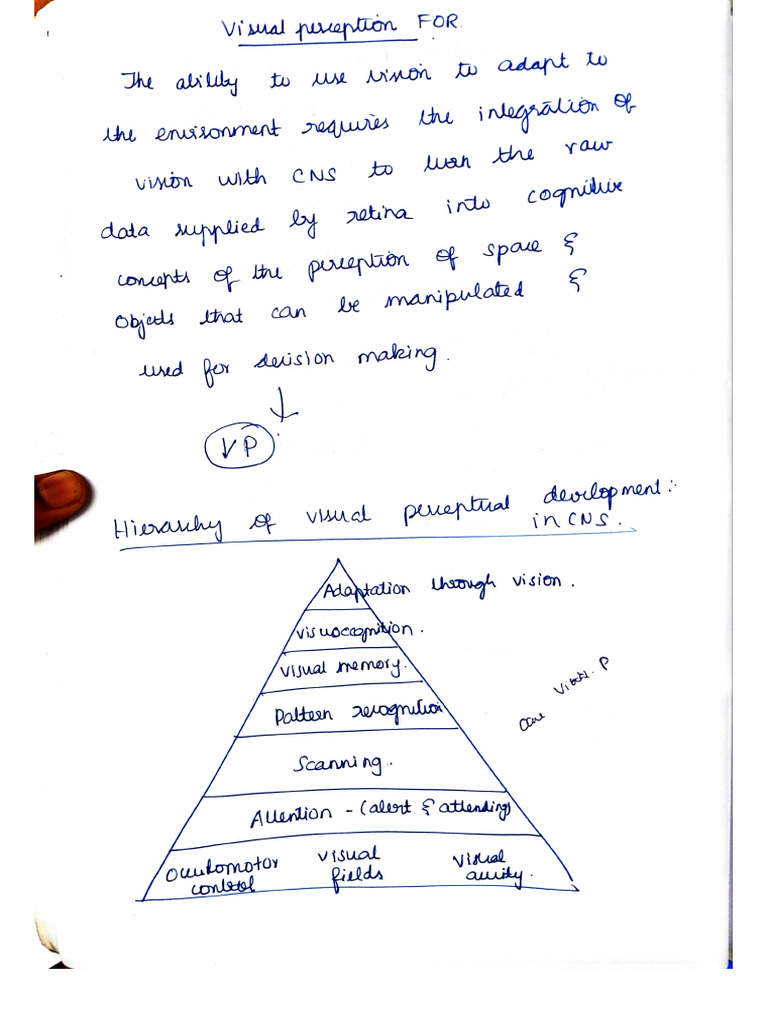 Visual perception FOR
The ability to use vision to adapt to
the environment requires the integration of
vision with CNS to turn the raw
data supplied by retina into cognitive
concepts of the perception of space &
objects that can be manipulated &
used for decision making.
VP
Hierarchy of visual perceptual development:-
in CNS.
Adaptation through vision.
visuocognition.
visual memory.
Pattern recognition
Scanning.
Attention - (alert & attending)
Occulomotor control
visual fields
visual acuity.